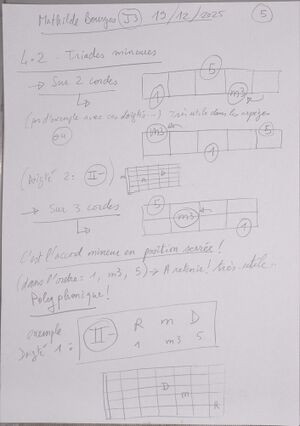 Mathilde Bourges J3 19/12/2025 5
4.2 - Triades mineures
→ Sur 2 cordes
5
1 m3
(pas d'exemple avec ces doigtés...) Très utile dans les arpèges
ou
m3 5
1
(Doigté 2: II-)
→ Sur 3 cordes
5
m3
1
C'est l'accord mineur en position serrée!
(dans l'ordre: 1, m3, 5) → A retenir! très utile.
Polyphonique!
exemple
Doigté 1: II- R m D
1 m3 5
D
m
R